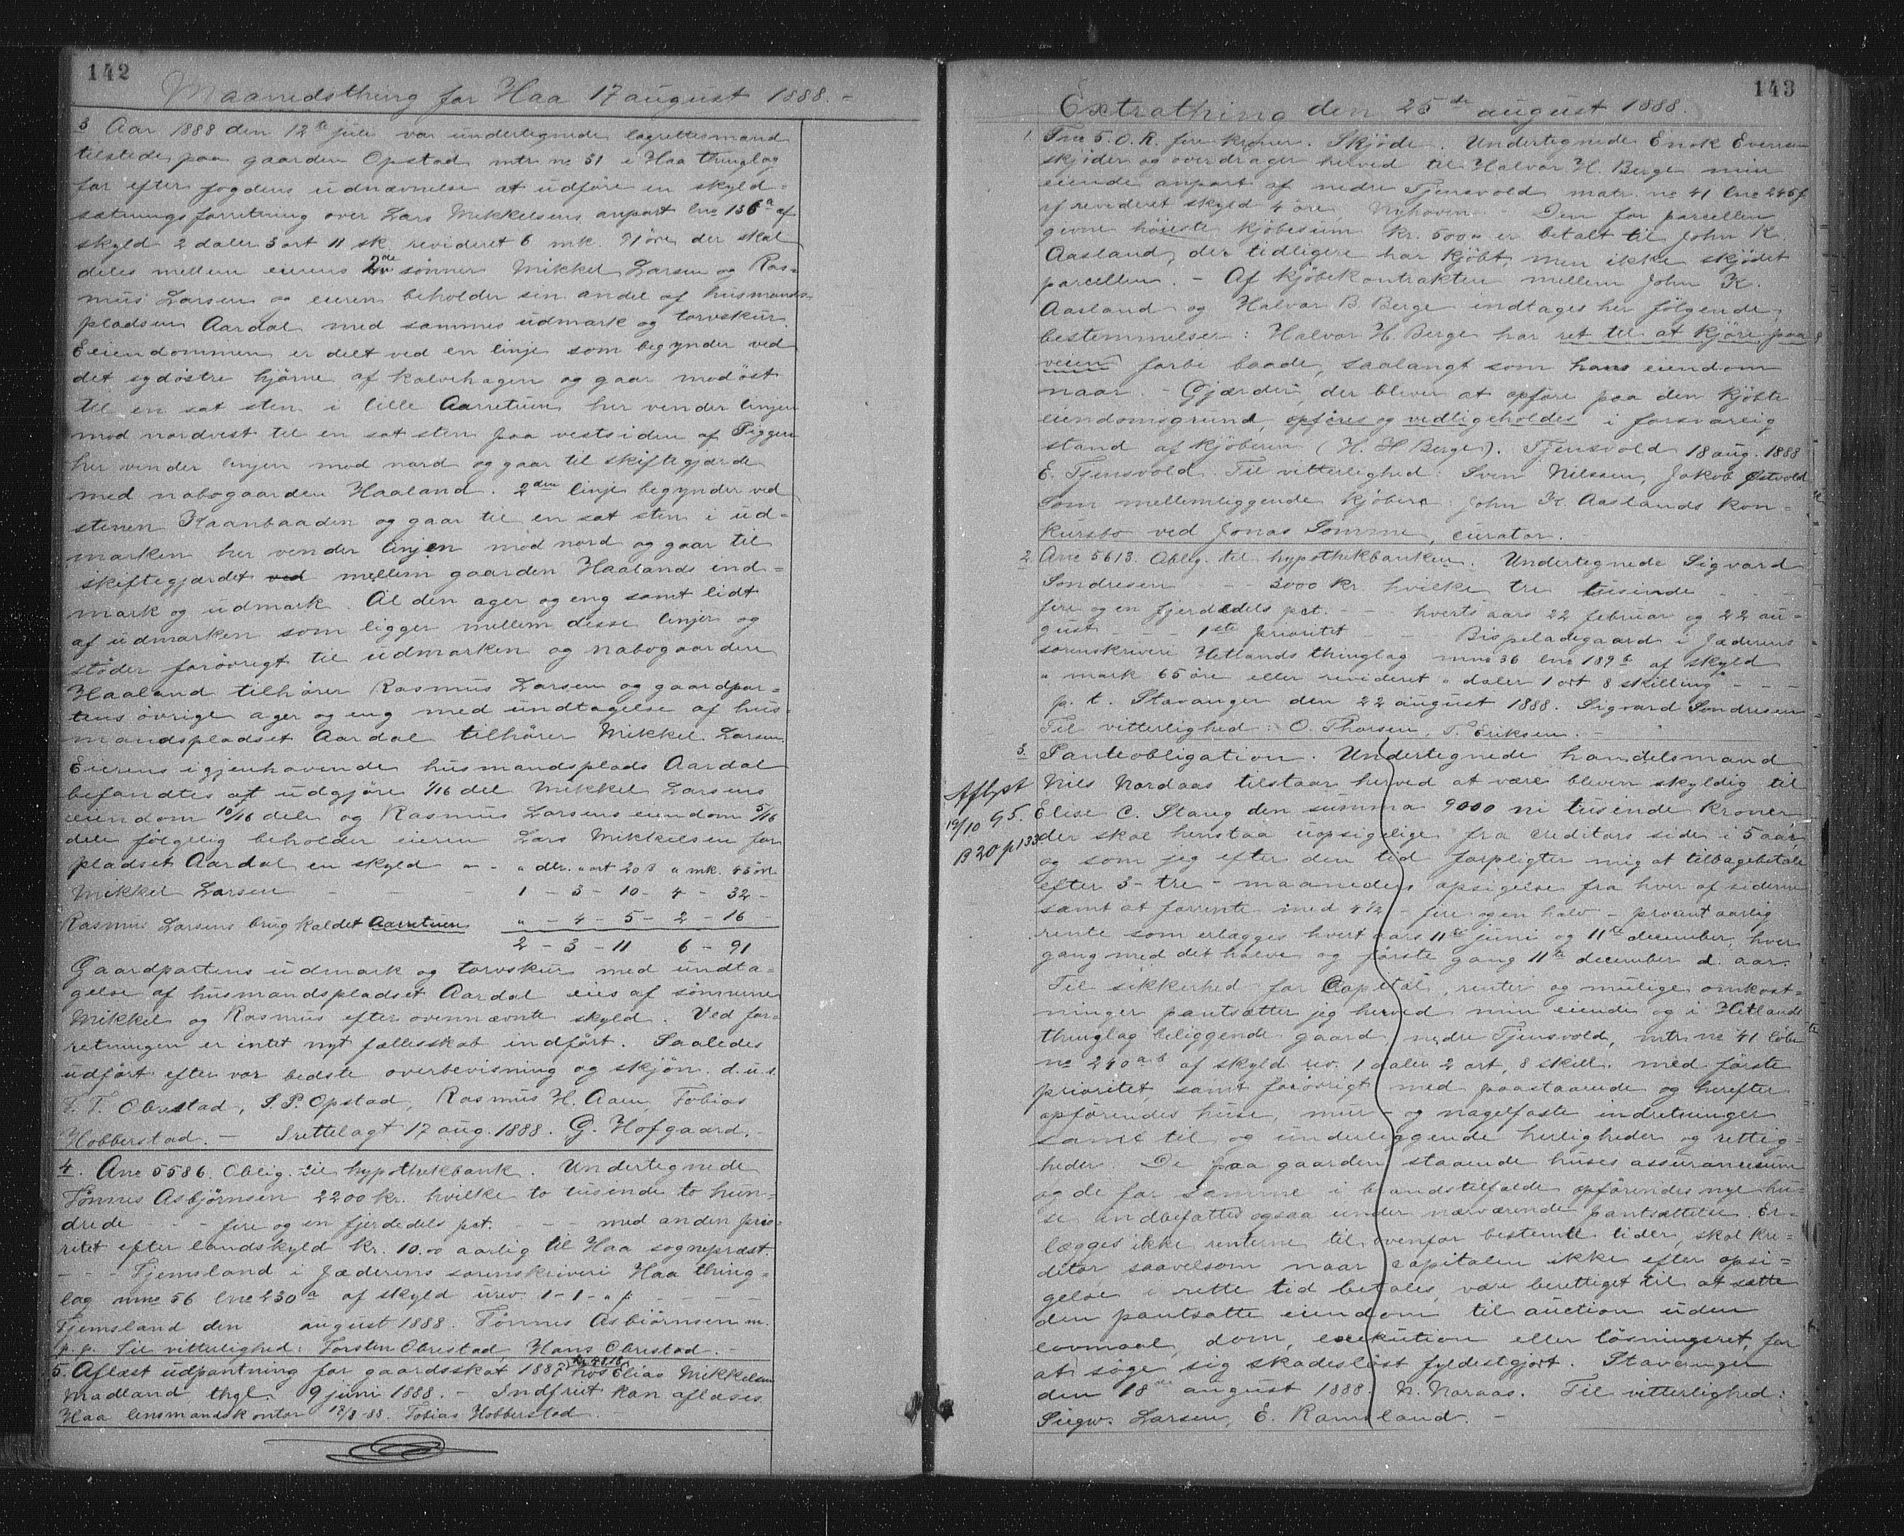 142
Maanedsthing for Haa 17 august 1888. -
3 Aar 1888 den 12te juli var undertegnede lagrettesmænd
tilstede paa gaarden Opstad mtr. no 31 i Haa thinglag
for efter fogdens udnævnelse at udføre en skyld-
sætningsforretning over Lars Mikkelsens anpart lno 136a af
skyld 2 daler 3 ort 11 sk. revideret 6 mk. 91 øre der skal
deles mellem eierens 2de sønner Mikkel Larsen og Ras-
mus Larsen og eieren beholder sin andel af husmands-
pladsen Aardal med sammes udmark og torvskur.
Eiendommen er delt ved en linje som begynder ved
det sydøstre hjørne af kalvehagen og gaar mod øst
til en sat sten i lille Aarretuen her vender linjen
mod nordvest til en sat sten paa vestsiden af Piggen
her vender linjen mod nord og gaar til skiftegjærde
med nabogaarden Haaland. 2den linje begynder ved
stenen Kaanbaaden og gaar til en sat sten i ud-
marken her vender linjen mod nord og gaar til
skiftegjærdet ved mellem gaarden Haalands ind-
mark og udmark. Al den ager og eng samt lidt
af udmarken som ligger mellem disse linjer og
støder forøvrigt til udmarken og nabogaarden
Haaland tilhører Rasmus Larsen og gaardpar-
tens øvrige ager og eng med undtagelse af hus-
mandspladset Aardal tilhører Mikkel Larsen.
Eierens igjenhavende husmandsplads Aardal
befandtes at udgjøre 1/16 del Mikkel Larsens
eiendom 10/16 dele og Rasmus Larsens eiendom 5/16
dele følgelig beholder eieren Lars Mikkelsen for
pladset Aardal en skyld - - " dlr. " ort 20 ß " mk. 43 øre
Mikkel Larsen - - - - 1 - 3 - 10 - 4 - 32 -
Rasmus Larsens brug kaldet Aarretuen " - 4 - 5 - 2 - 16 -
2 - 3 - 11 6 - 91
Gaardpartens udmark og torvskur med undta-
gelse af husmandspladset Aardal eies af sønnerne
Mikkel og Rasmus efter ovennævnte skyld. Ved for-
retningen er intet nyt fællesskab indført. Saaledes
udført efter vor bedste overbevisning og skjøn. d.u.s.
T. T. Obrestad, S. P. Opstad, Rasmus H. Aaen, Tobias
Hobberstad. - Irettelagt 17 aug. 1888. G. Hofgaard. -
4. Ano 5586. Oblig. til hypothekbank. Undertegnede
Tønnes Asbjørnsen 2200 kr. hvilke to tusende to hun-
drede - - - fire og en fjerdedels pct. - - - med anden prio-
ritet efter landskyld kr. 10.00 aarlig til Haa sognepræst.
- - - Tjemsland i Jæderens sorenskriveri Haa thing-
lag mno 56 lno 230a af skyld urev. 1-1- " ß - - - - -
Tjemsland den august 1888. Tønnes Asbiørnsen m.
p. p. Til vitterlighed: Torsten Obrestad Hans Obrestad. -
5. Aflæst udpantning for gaardsskat 1887 kr. 48.18 hos Elias Mikkelsen
Madland, thgl. 9 juni 1888. - Indfriet kan aflæses
Haa lensmandskontor 13/8 88. Tobias Hobberstad.
143
Extrathing den 25de august 1888.
1. Tno 5. O. R. fire kroner. Skjøde. Undertegnede Enok Evensen
skjøder og overdrager herved til Halvor H. Berge min
eiende anpart af nedre Tjensvold matr. no 41 lno 245f
af revideret skyld 4 øre, Nyhaven. - Den for parcellen
givne høieste kjøbesum kr. 500.00 er betalt til John K.
Aasland, der tidligere har kjøbt, men ikke skjødet
parcellen. - Af kjøbekontrakten mellem John K.
Aasland og Halvor B. Berge indtages her følgende
bestemmelser: Halvor H. Berge har ret til at kjøre paa
veien forbe baade, saalangt som hans eiendom
naar. - Gjærder der bliver at opføre paa den kjøbte
eiendomsgrund, opføres og vedligeholdes i forsvarlig
stand af kjøberen (H. H. Berge). Tjensvold 18 aug. 1888
E. Tjensvold. Til vitterlighed: Sven Nilssen, Jakob Østvold
Som mellemliggende kjøbere John K. Aaslands kon-
kursbo ved Jonas Sømme, curator. -
2. Ano 5613. Oblg. til hypothekbanken. Undertegnede Sigvard
Søndresen - - 3000 kr. hvilke tre tusende - - -
fire og en fjerdedels pct. - - - hverts aars 22 februar og 22 au-
gust - - - 1ste prioritet - - Bispeladegaard i Jæderens
sorenskriveri Hetlands thinglag mno 36 lno 189b af skyld
" mark 65 øre eller revideret " daler 1 ort 8 skilling - - -
p. t. Stavanger den 22 august 1888. Sigvard Søndresen
Til vitterlighed: O. Thorsen, T. Eriksen. -
3. Panteobligation. Undertegnede handelsmand
Nils Nordaas tilstaar herved at være bleven skyldig til
Aflyst
19/10 95.
B 20 p 133
Elise C. Stang den summa 9000 ni tusende kroner
der skal henstaa uopsigelige fra creditors side i 5 aar,
og som jeg efter den tid forpligter mig at tilbagebetale
efter 3 - tre - maaneders opsigelse fra hver af siderne
samt at forrente med 4 1/2 - fire og en halv - procent aarlig
rente som erlægges hvert aars 11te juni og 11te december, hver
gang med det halve og første gang 11te december d. aar.
Til sikkerhed for Capital, renter og mulige omkost-
ninger pantsætter jeg herved min eiende og i Hetlands
thinglag beliggende gaard nedre Tjensvold, mtr. no 41 løbe
no 240 a.b af skyld urv. 1 daler 2 ort, 8 skill. med første
prioritet samt forøvrigt med paastaaende og herefter
opførendes huse, mur- og nagelfaste indretninger
samt til og underliggende herligheder og rettig-
heder. De paa gaarden staaende huses assurancesum
og de for samme i brandstilfælde opførendes nye hu-
se indbefattes ogsaa under nærværende pantsættelse. Er-
lægges ikke renterne til ovenfor bestemte tider, skal kre-
ditor saavelsom naar capitalen ikke efter opsi-
gelse i rette tid betales, være berettiget til at sætte
den pantsatte eiendom til auction uden
lovmaal, dom, execution eller løsningsret, for
at søge sig skadesløst fyldestgjort. Stavanger
den 18de august 1888. N. Noraas. Til vitterlighed:
Sigw. Larsen, E. Ramsland. -